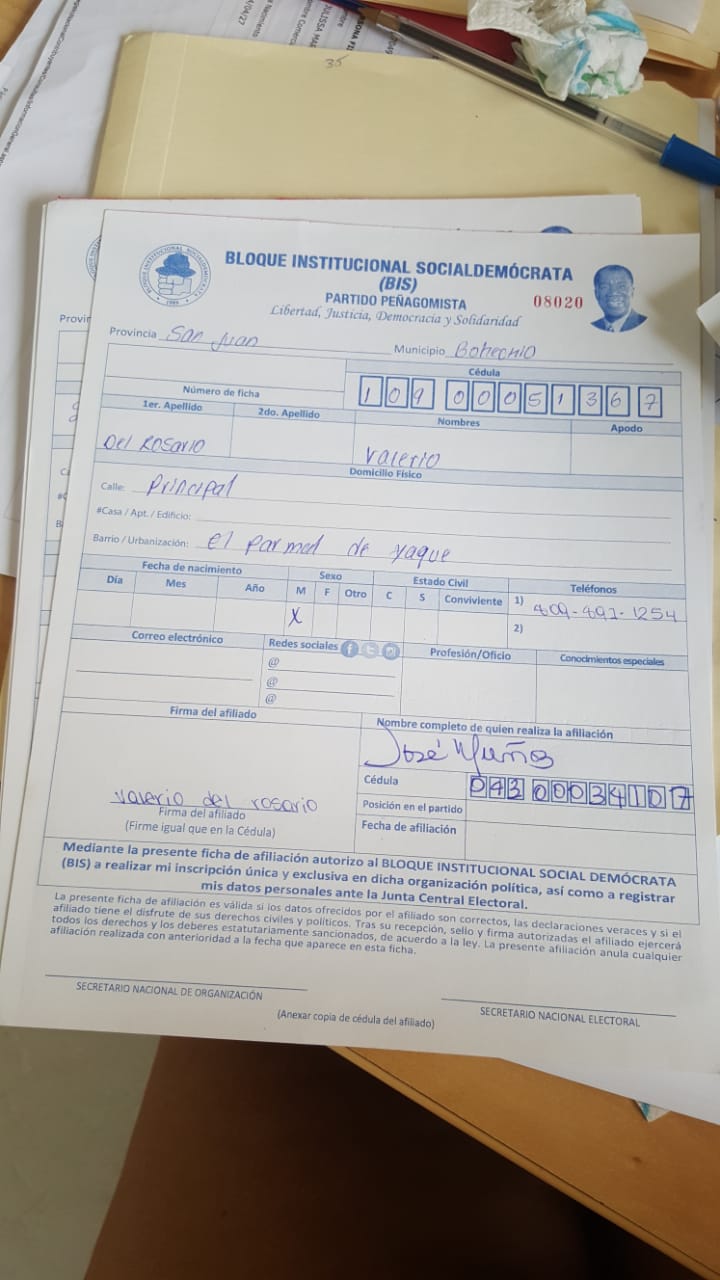 35
BLOQUE INSTITUCIONAL SOCIALDEMÓCRATA
(BIS)
PARTIDO PEÑAGOMISTA
08020
Libertad, Justicia, Democracia y Solidaridad
Provincia San Juan Municipio Bohechio
Cédula
Número de ficha 109 0005136 7
1er. Apellido 2do. Apellido Nombres Apodo
Del Rosario Valerio
Domicilio Físico
Calle: Principal
#Casa / Apt. / Edificio:
Barrio / Urbanización: el parmar de yaque
Fecha de nacimiento Sexo Estado Civil Teléfonos
Día Mes Año M F Otro C S Conviviente 1) 809-491-1254
X 2)
Correo electrónico Redes sociales Profesión/Oficio Conocimientos especiales
@
@
@
Firma del afiliado Nombre completo de quien realiza la afiliación
José Muñoz
Cédula 043 0003410 7
valerio del rosario Posición en el partido
Firma del afiliado
(Firme igual que en la Cédula) Fecha de afiliación
Mediante la presente ficha de afiliación autorizo al BLOQUE INSTITUCIONAL SOCIAL DEMÓCRATA
(BIS) a realizar mi inscripción única y exclusiva en dicha organización política, así como a registrar
mis datos personales ante la Junta Central Electoral.
La presente ficha de afiliación es válida si los datos ofrecidos por el afiliado son correctos, las declaraciones veraces y si el
afiliado tiene el disfrute de sus derechos civiles y políticos. Tras su recepción, sello y firma autorizadas el afiliado ejercerá
todos los derechos y los deberes estatutariamente sancionados, de acuerdo a la ley. La presente afiliación anula cualquier
afiliación realizada con anterioridad a la fecha que aparece en esta ficha.
SECRETARIO NACIONAL DE ORGANIZACIÓN
SECRETARIO NACIONAL ELECTORAL
(Anexar copia de cédula del afiliado)